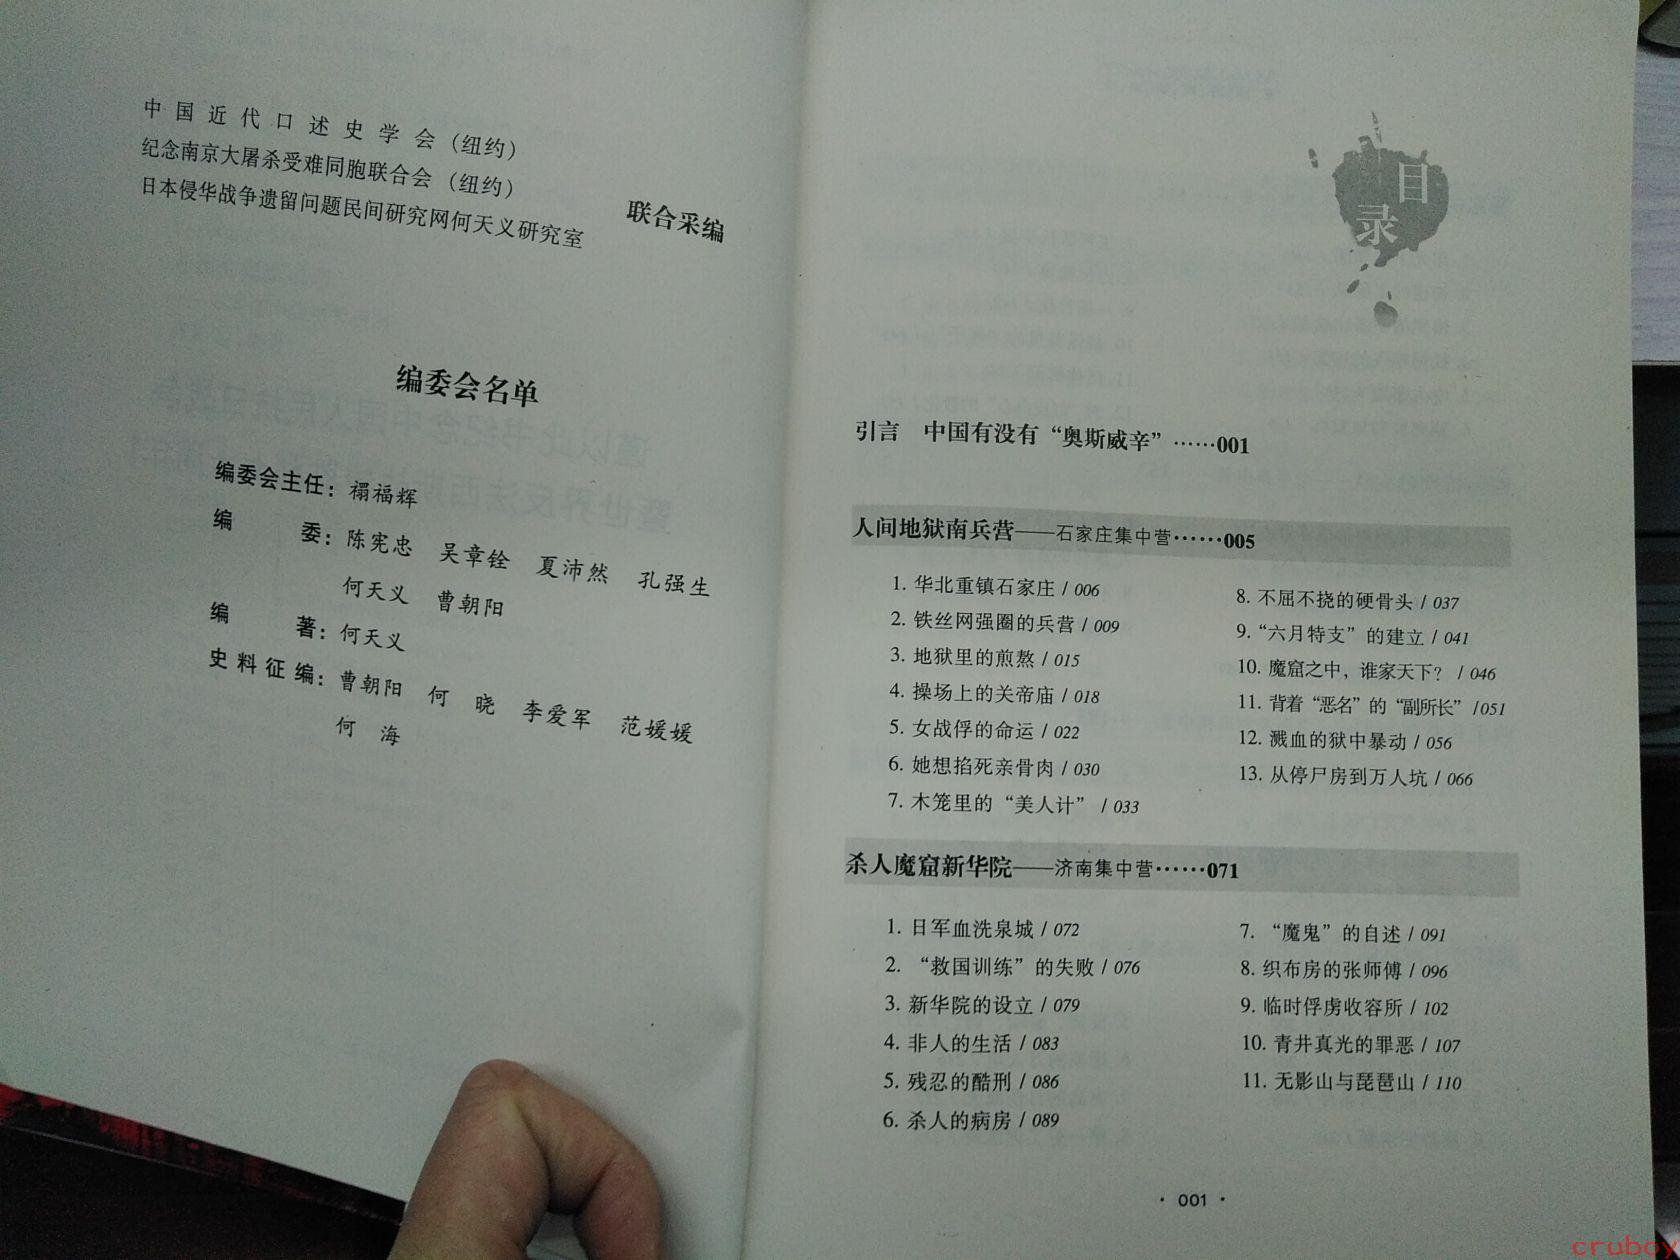 中国近代口述史学会（纽约）
纪念南京大屠杀受难同胞联合会（纽约）
日本侵华战争遗留问题民间研究网何天义研究室
联合采编
编委会名单
编委会主任：禤福辉
编 委：陈宪忠 吴章铨 夏沛然 孔强生
何天义 曹朝阳
编 著：何天义
史料征编：曹朝阳 何 晓 李爱军 范媛媛
何 海
目录
引言 中国有没有“奥斯威辛”……001
人间地狱南兵营——石家庄集中营……005
1. 华北重镇石家庄 / 006
2. 铁丝网强圈的兵营 / 009
3. 地狱里的煎熬 / 015
4. 操场上的关帝庙 / 018
5. 女战俘的命运 / 022
6. 她想掐死亲骨肉 / 030
7. 木笼里的“美人计” / 033
8. 不屈不挠的硬骨头 / 037
9.“六月特支”的建立 / 041
10. 魔窟之中，谁家天下？ / 046
11. 背着“恶名”的“副所长” / 051
12. 溅血的狱中暴动 / 056
13. 从停尸房到万人坑 / 066
杀人魔窟新华院——济南集中营……071
1. 日军血洗泉城 / 072
2. “救国训练”的失败 / 076
3. 新华院的设立 / 079
4. 非人的生活 / 083
5. 残忍的酷刑 / 086
6. 杀人的病房 / 089
7. “魔鬼”的自述 / 091
8. 织布房的张师傅 / 096
9. 临时俘虏收容所 / 102
10. 青井真光的罪恶 / 107
11. 无影山与琵琶山 / 110
· 001 ·
cruboy